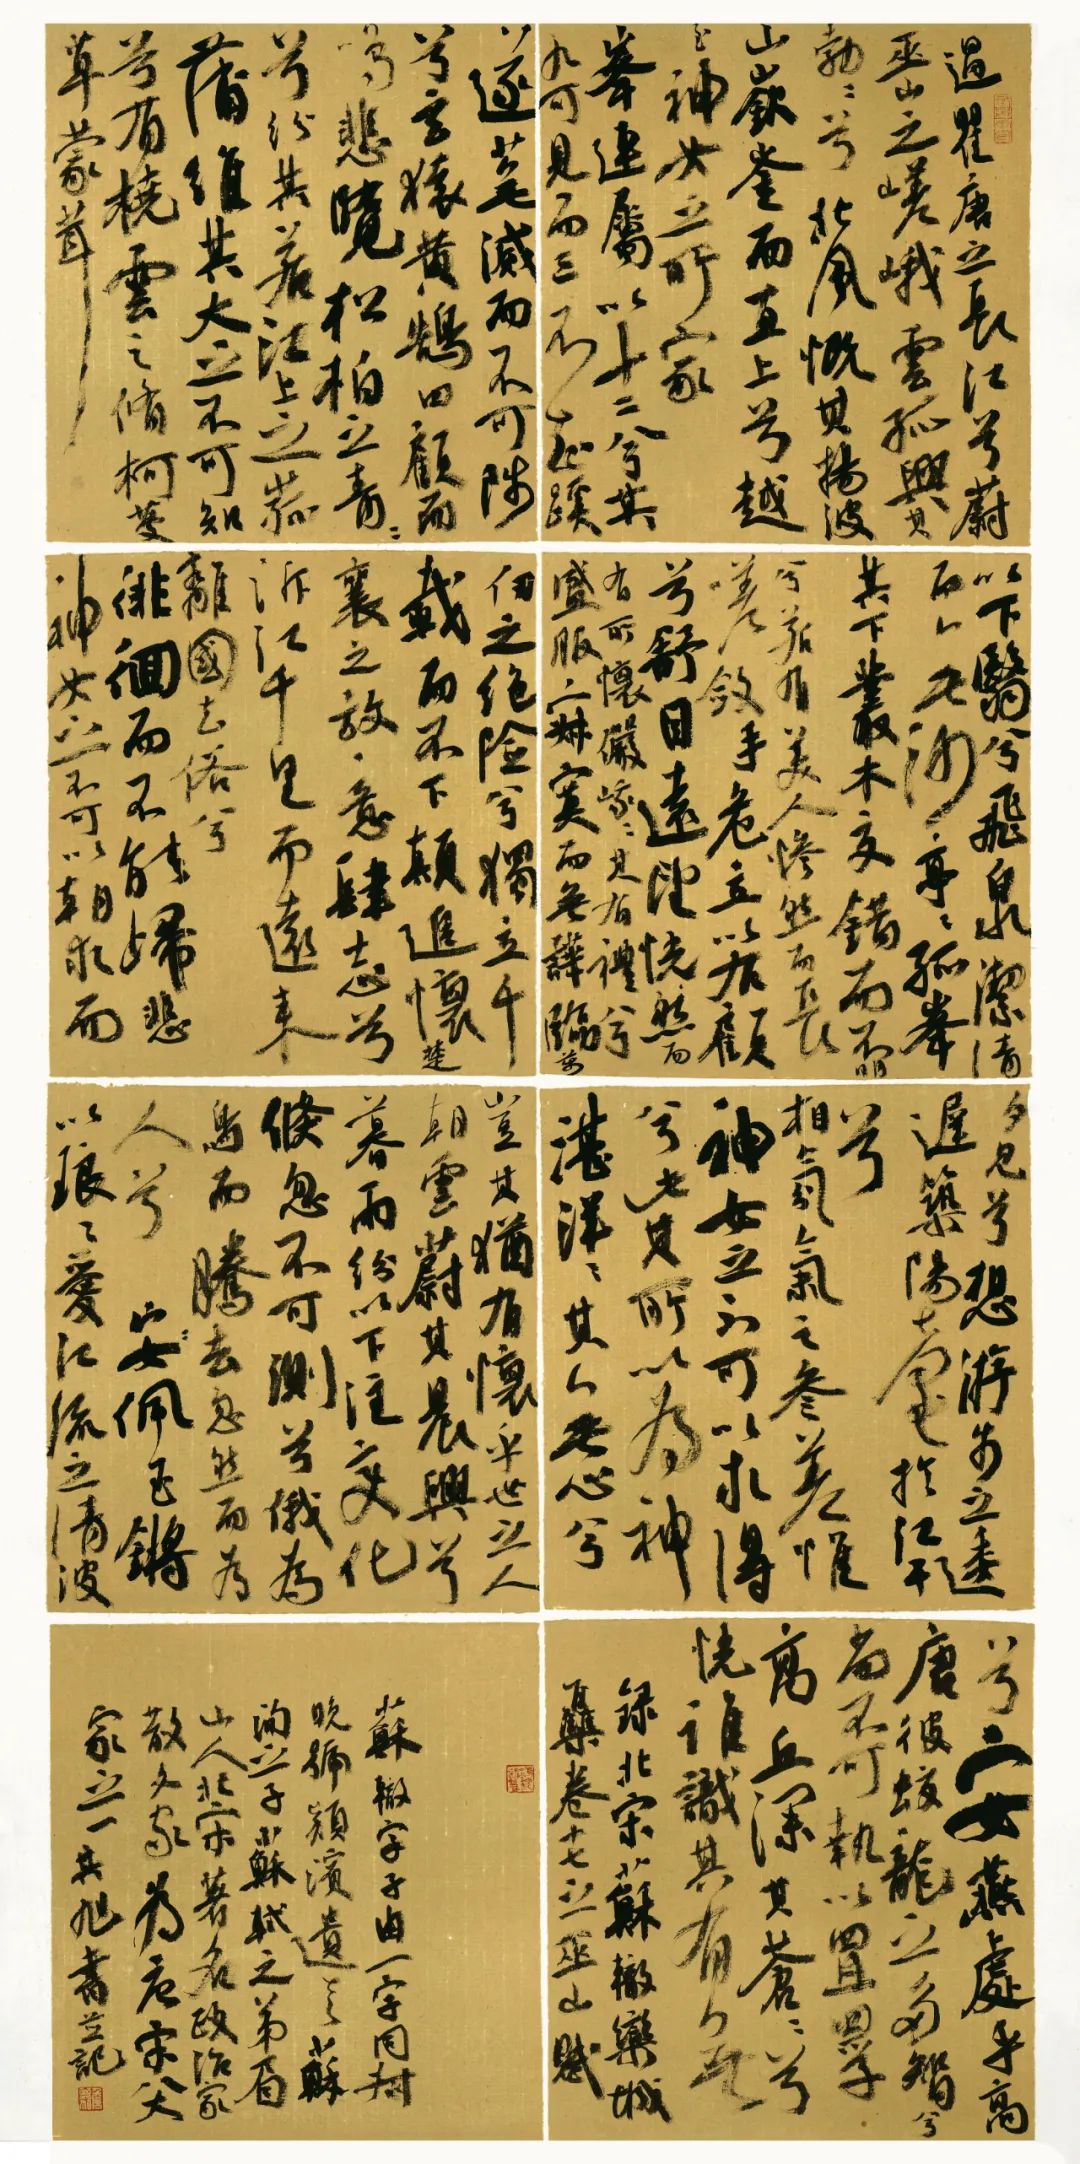 過瞿唐之長江兮蔚
巫山之嵯峨雲孤興其
勃勃兮北風慨其揚波
山嶔崟而直上兮越
至神女之所家
峯連屬以十二兮其
九可見而三不知蹊
遂蕪滅而不可陟
兮玄猿黃鵠四顧而
鳴悲覽松柏之青青
兮紛其若江上之菰
蒲維其大之不可知
兮有橈雲之脩柯蔓
草蒙茸
以下翳兮飛泉潔清
而無沙亭亭孤峯
其下叢木交錯而不明
兮若有美人慘然而長
嗟斂手危立以右顧
兮舒目遠望怳然而
有所懷儼峨峨其有禮兮
盛服寂寞而無譁臨萬
仞之絕險兮獨立千
載而不下顛追懷楚
襄之放意肆志兮
泝江千里而遠來
離國去俗兮
徘徊而不能歸悲
神女之不可以朝求而
夕見兮想游步之逶
遲築陽臺於江干
兮
相氛氣之參差惟
神女之不可以求得
兮此其所以為神
湛洋洋其無心兮
豈其猶有懷乎世之人
朝雲蔚其晨興兮
暮雨紛以下注變化
倏忽不可測兮俄為
鳥而騰去忽然而為
人兮佩玉鏘
以琅琅愛江流之清波
兮安燕處乎高
唐彼蛟龍之多智兮
尚不可執以罝罘
高丘深其蒼蒼兮
怳誰識其有無
錄北宋蘇轍欒城
集卷十七之巫山賦
蘇轍字子由一字同叔
晚號潁濱遺老蘇
洵之子蘇軾之弟眉
山人北宋著名政治家
散文家為唐宋八大
家之一其旭書並記